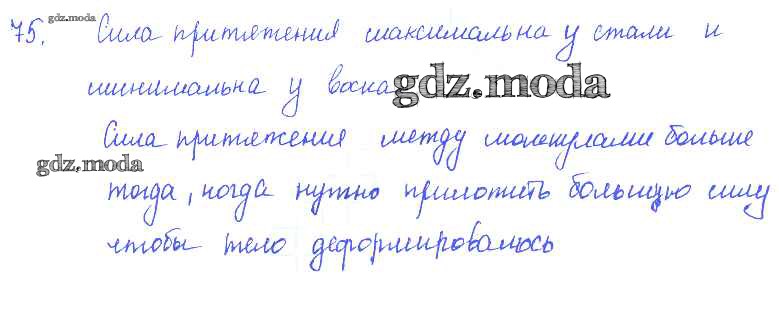 75. gdz.moda Сила притяжения максимальна у стали и
минимальна у воска gdz.moda
Сила притяжения между молекулами больше
gdz.moda
тогда, когда нужно приложить большую силу
чтобы тело деформировалось